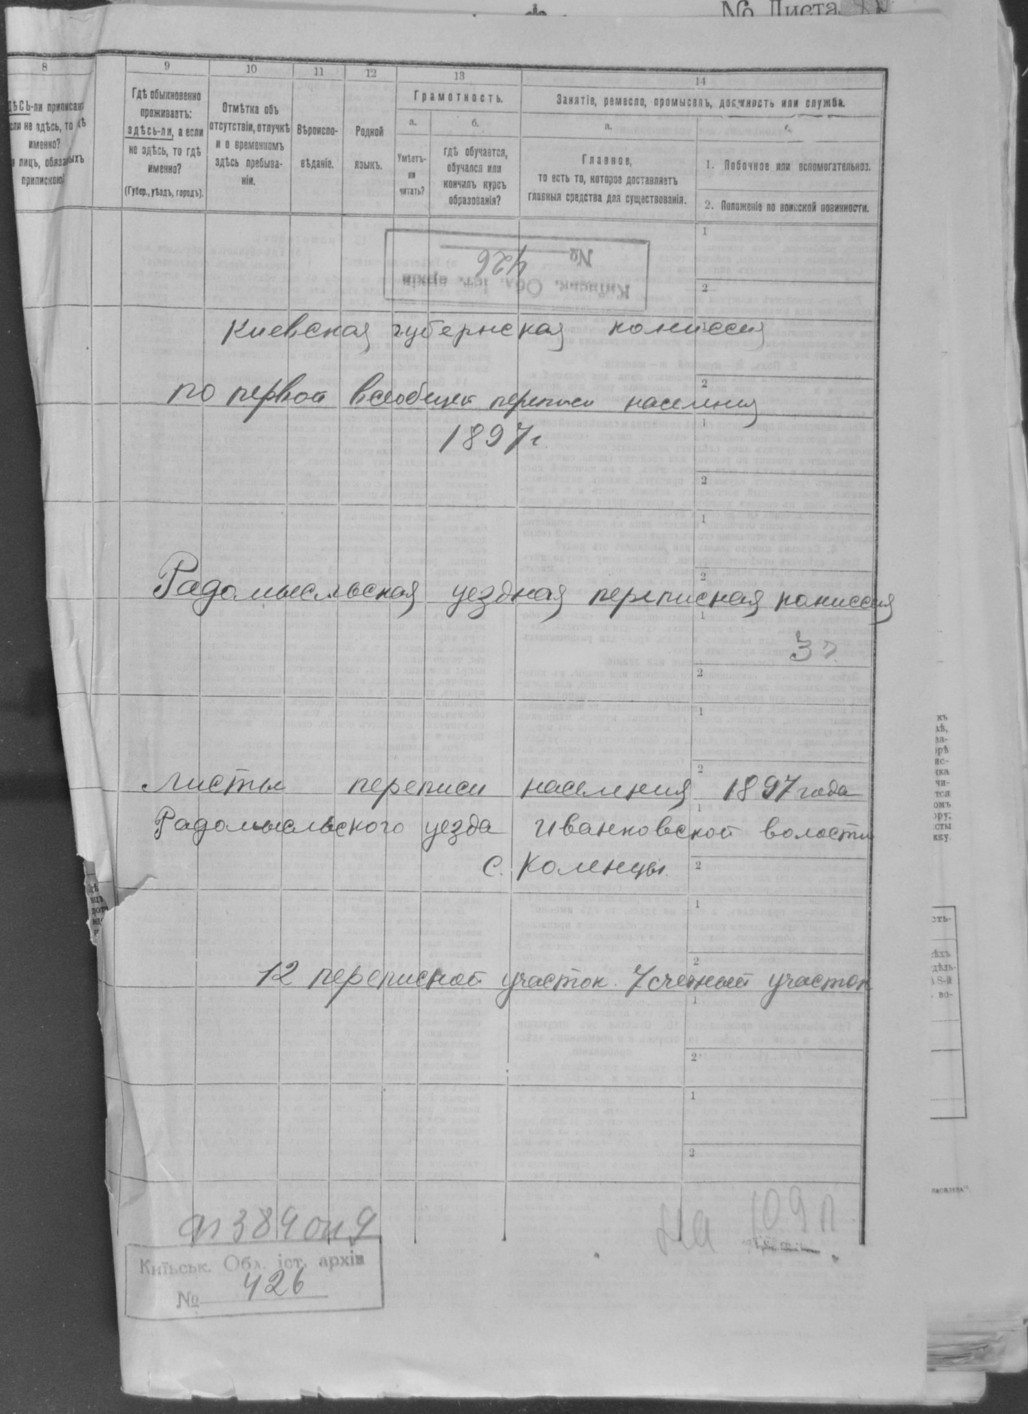 № Листа
8
9
10
11
12
13
14
Гдѣ обыкновенно проживаетъ: здѣсь-ли, а если не здѣсь, то гдѣ именно? (Губер., уѣздъ, городъ).
Отмѣтка объ отсутствіи, отлучкѣ и о временномъ здѣсь пребываніи.
Вѣроисповѣданіе.
Родной языкъ.
Грамотность.
а.
Умѣетъ-ли читать?
б.
гдѣ обучается, обучался или кончилъ курсъ образованія?
Занятіе, ремесло, промыселъ, должность или служба.
а.
Главное,
то есть то, которое доставляетъ
главныя средства для существованія.
1. Побочное или вспомогательное.
2. Положеніе по воинской повинности.
Київськ. Обл. іст. архів
№ 426
Киевская губернская комиссия
по первой всеобщей переписи населения
1897 г
Радомысльская уездная переписная комиссия
Листы переписи населения 1897 года
Радомысльского уезда Иванковской волости
с. Коленцы
12 переписной участок 7 счетный участок
ф 384 оп 9
На 109 л
Київськ. Обл. іст. архів
№ 426